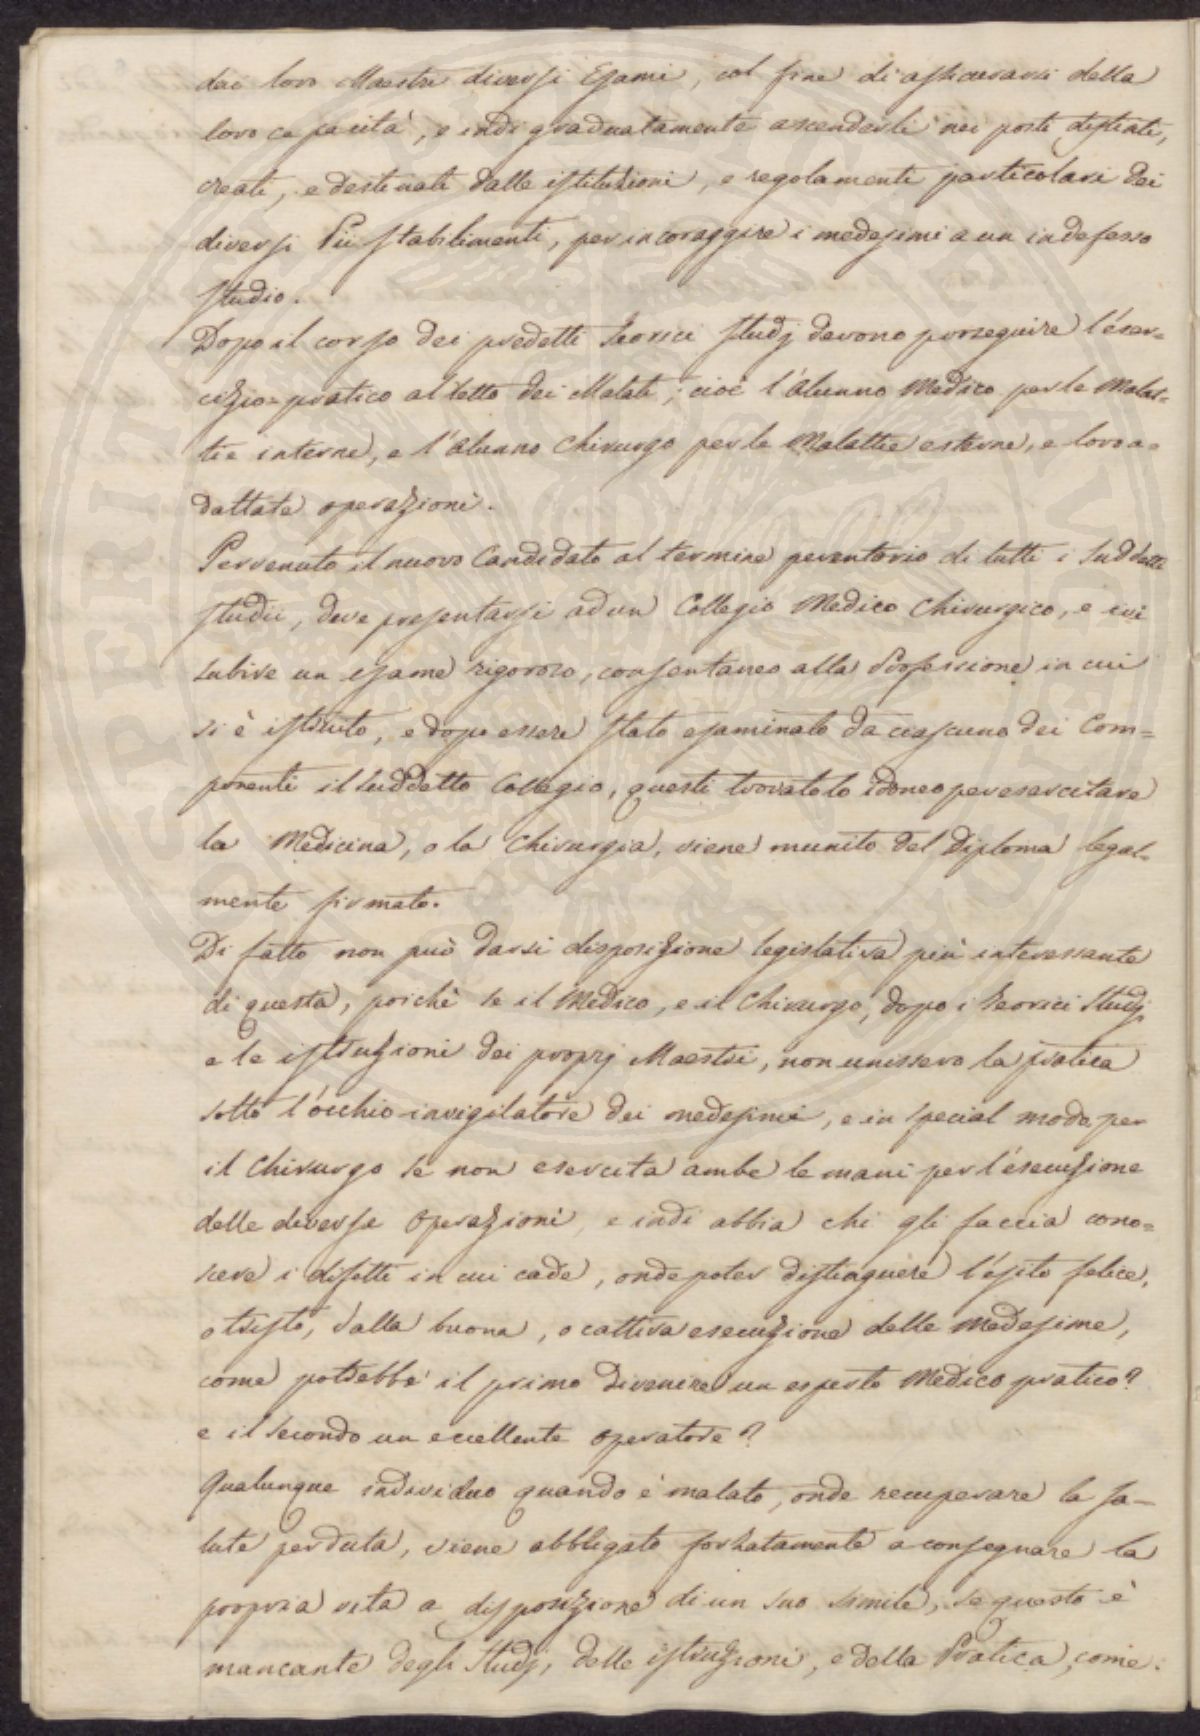 dai loro Maestri diversi Esami, col fine di assicurarsi della
loro capacità, e indi gradualmente ascenderli nei posti distinti,
creati, e destinati dalle istituzioni, e regolamenti particolari dei
diversi Pii Stabilimenti, per incoraggire i medesimi a un indefesso
studio.
Dopo il corso dei predetti teorici studj devono proseguire l'éser=
cizio pratico al letto dei Malati; cioè l'alunno Medico per le Malat=
tie interne, e l'alunno Chirurgo per le Malattie esterne, e loro a=
dattate operazioni.
Pervenuto il nuovo Candidato al termine perentorio di tutti i suddetti
studii, deve presentarsi ad un Collegio Medico Chirurgico, e ivi
subire un esame rigoroso, consentaneo alla Professione in cui
si è istruito, e dopo essere stato esaminato da ciascuno dei Com=
ponenti il suddetto Collegio, questi trovatolo idoneo per esercitare
la Medicina, o la Chirurgia, viene munito del Diploma legal=
mente firmato.
Di fatto non può darsi disposizione legislativa più interessante
di questa, poichè se il Medico, e il Chirurgo, dopo i teorici studj
e le istruzioni dei proprj Maestri, non unissero la pratica
sotto l'occhio invigilatore dei medesimi, e in special modo per
il Chirurgo se non esercita ambe le mani per l'ésecuzione
delle diverse operazioni, e indi abbia chi gli faccia cono=
scere i difetti in cui cade, onde poter distinguere l'ésito felice,
o tristo, dalla buona, o cattiva esecuzione delle medesime,
come potrebbe il primo divenire un esperto Medico pratico?
e il secondo un eccellente operatore?
Qualunque individuo quando è malato, onde recuperare la sa=
lute perduta, viene obbligato forzatamente a consegnare la
propria vita a disposizione di un suo simile, se questo è
mancante degli studj, delle istruzioni, e della Pratica, come